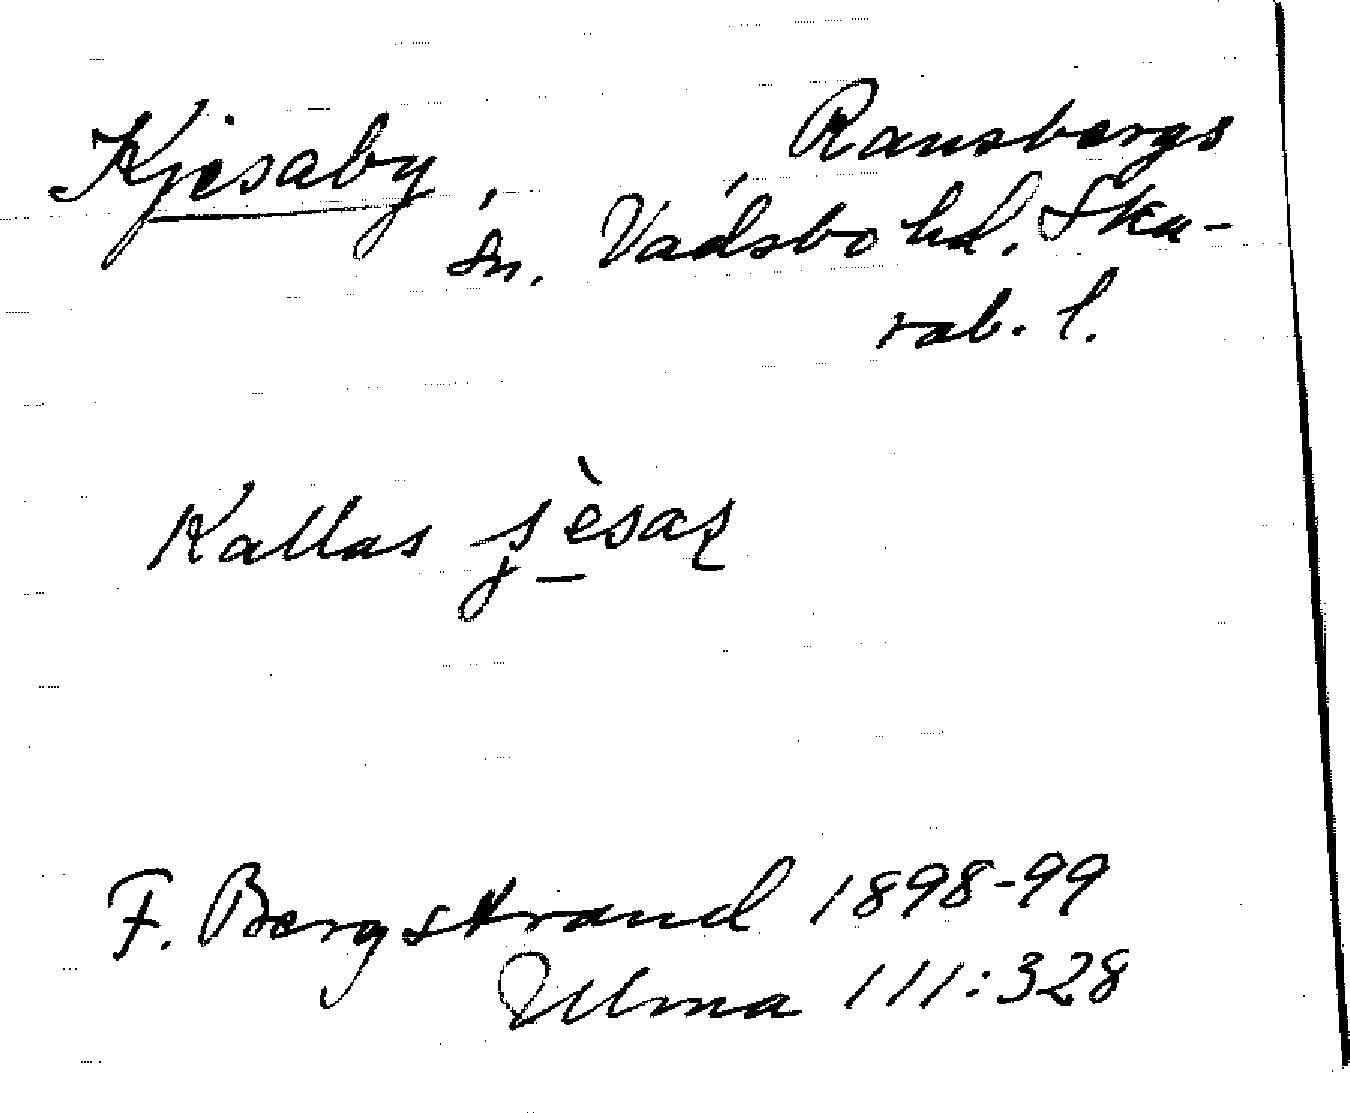 Kjesaby, Ransbergs
sn, Vadsbo hd. Ska-
rab. l.
Kallas
F. Bergstrand 1898-99
Ulma 111:328